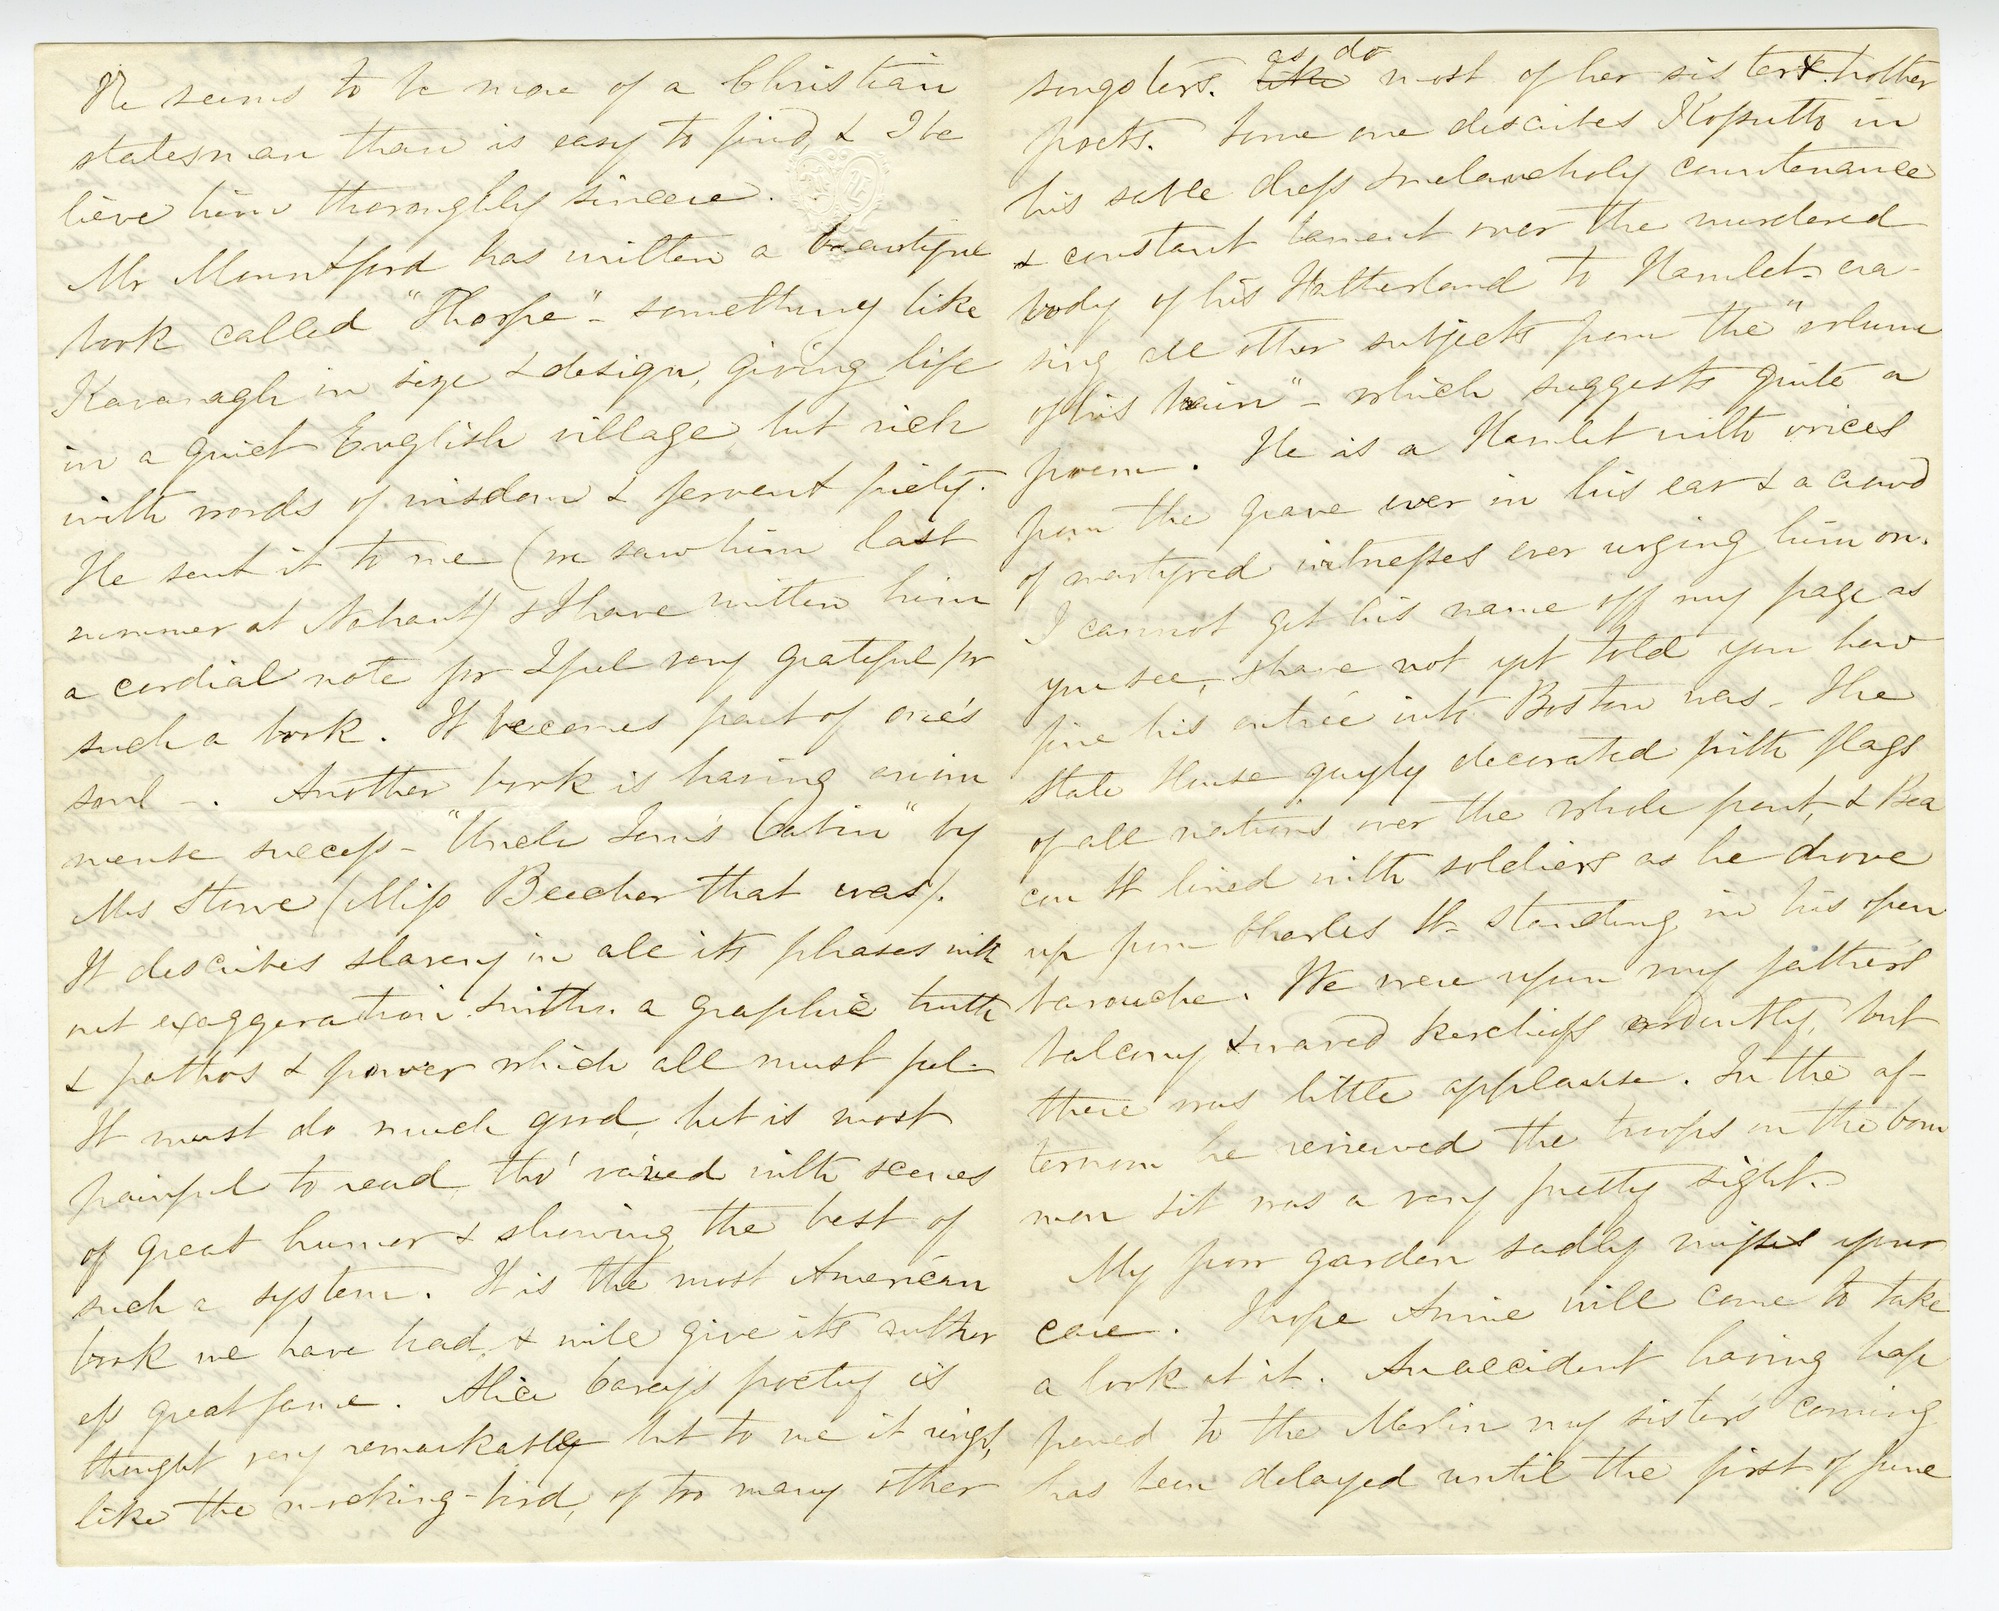 He seems to be more of a Christian
statesman than is easy to find, & I be
lieve him thoroughly sincere.
Mr Mountford has written a beautiful
book called "Thorpe" - something like
Kavanagh in size & design, giving life
in a quiet English village but rich
with words of wisdom & fervent piety.
He sent it to me (we saw him last
summer at Nahant) & I have written him
a cordial note for I feel very grateful for
such a book. It becomes part of one's
soul -. Another book is having an im
mense success - "Uncle Tom's Cabin" by
Mrs Stowe (Miss Beecher that was).
It describes slavery in all its phases with
out exaggeration & with a graphic truth
& pathos & power which all must feel.
It must do much good, but is most
painful to read tho' varied with scenes
of great humor & showing the best of
such a system. It is the most American
book we have had, & will give its author
ess great fame. Alice Carey's poetry is
thought very remarkable but to me it rings,
like the mocking-bird, of too many other
songsters. like as do most of her sister & brother
poets. Some one describes Kossuth in
his sable dress & melancholy countenance
& constant lament over the murdered
body of his Fatherland to Hamlet - era-
sing all other subjects from the "volume
of his brain" - which suggests quite a
poem. He is a Hamlet with voices
from the grave ever in his ear & a crowd
of martyred witnesses ever urging him on.
I cannot get his name off my page as
you see, & have not yet told you how
fine his entrée into Boston was. The
State House gayly decorated with flags
of all nations over the whole front, & Bea
con St lined with soldiers as he drove
up from Charles St standing in his open
barouche. We were upon my father's
balcony & waved kerchiefs ardently, but
there was little applause. In the af-
ternoon he reviewed the troops on the com
mon & it was a very pretty sight.
My poor garden sadly misses your
care. I hope Annie will come to take
a look at it. An accident having hap
pened to the Merlin my sister's coming
has been delayed until the first of June